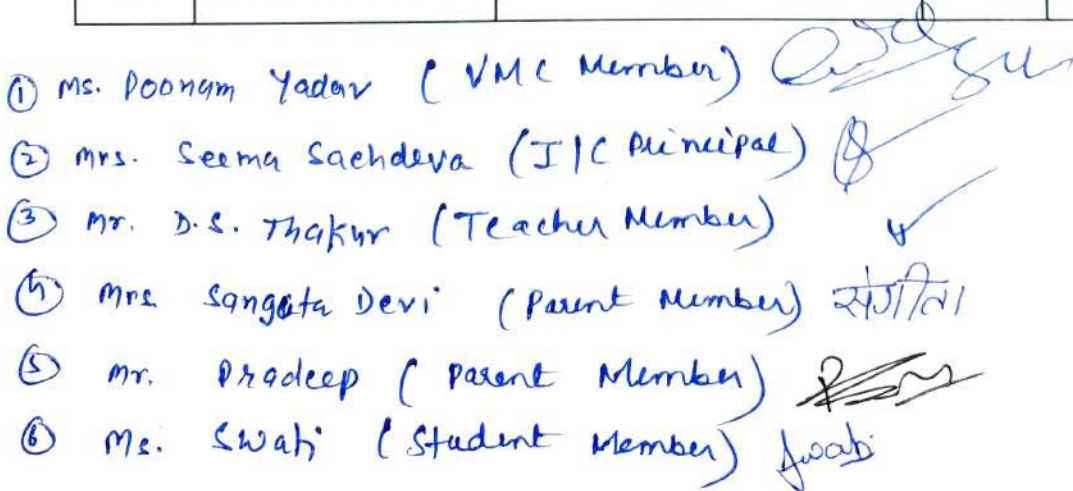 ① Ms. Poonam Yadav (VMC Member)
② Mrs. Seema Sachdeva (I/C Principal)
③ Mr. D.S. Thakur (Teacher Member)
④ Mrs. Sangeta Devi (Parent Member) संगीता
⑤ Mr. Pradeep (Parent Member)
⑥ Ms. Swati (Student Member) Swati